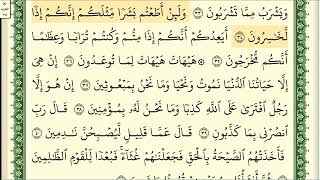 وَيَشْرَبُ مِمَّا تَشْرَبُونَ ٣٣ وَلَئِنْ أَطَعْتُم بَشَرًا مِّثْلَكُمْ إِنَّكُمْ إِذًا
لَّخَٰسِرُونَ ٣٤ أَيَعِدُكُمْ أَنَّكُمْ إِذَا مِتُّمْ وَكُنتُمْ تُرَابًا وَعِظَٰمًا
أَنَّكُم مُّخْرَجُونَ ٣٥ ۞ هَيْهَاتَ هَيْهَاتَ لِمَا تُوعَدُونَ ٣٦ إِنْ هِىَ
إِلَّا حَيَاتُنَا ٱلدُّنْيَا نَمُوتُ وَنَحْيَا وَمَا نَحْنُ بِمَبْعُوثِينَ ٣٧ إِنْ هُوَ إِلَّا
رَجُلٌ ٱفْتَرَىٰ عَلَى ٱللَّهِ كَذِبًا وَمَا نَحْنُ لَهُۥ بِمُؤْمِنِينَ ٣٨ قَالَ رَبِّ
ٱنصُرْنِى بِمَا كَذَّبُونِ ٣٩ قَالَ عَمَّا قَلِيلٍ لَّيُصْبِحُنَّ نَٰدِمِينَ ٤٠
فَأَخَذَتْهُمُ ٱلصَّيْحَةُ بِٱلْحَقِّ فَجَعَلْنَٰهُمْ غُثَآءً فَبُعْدًا لِّلْقَوْمِ ٱلظَّٰلِمِينَ